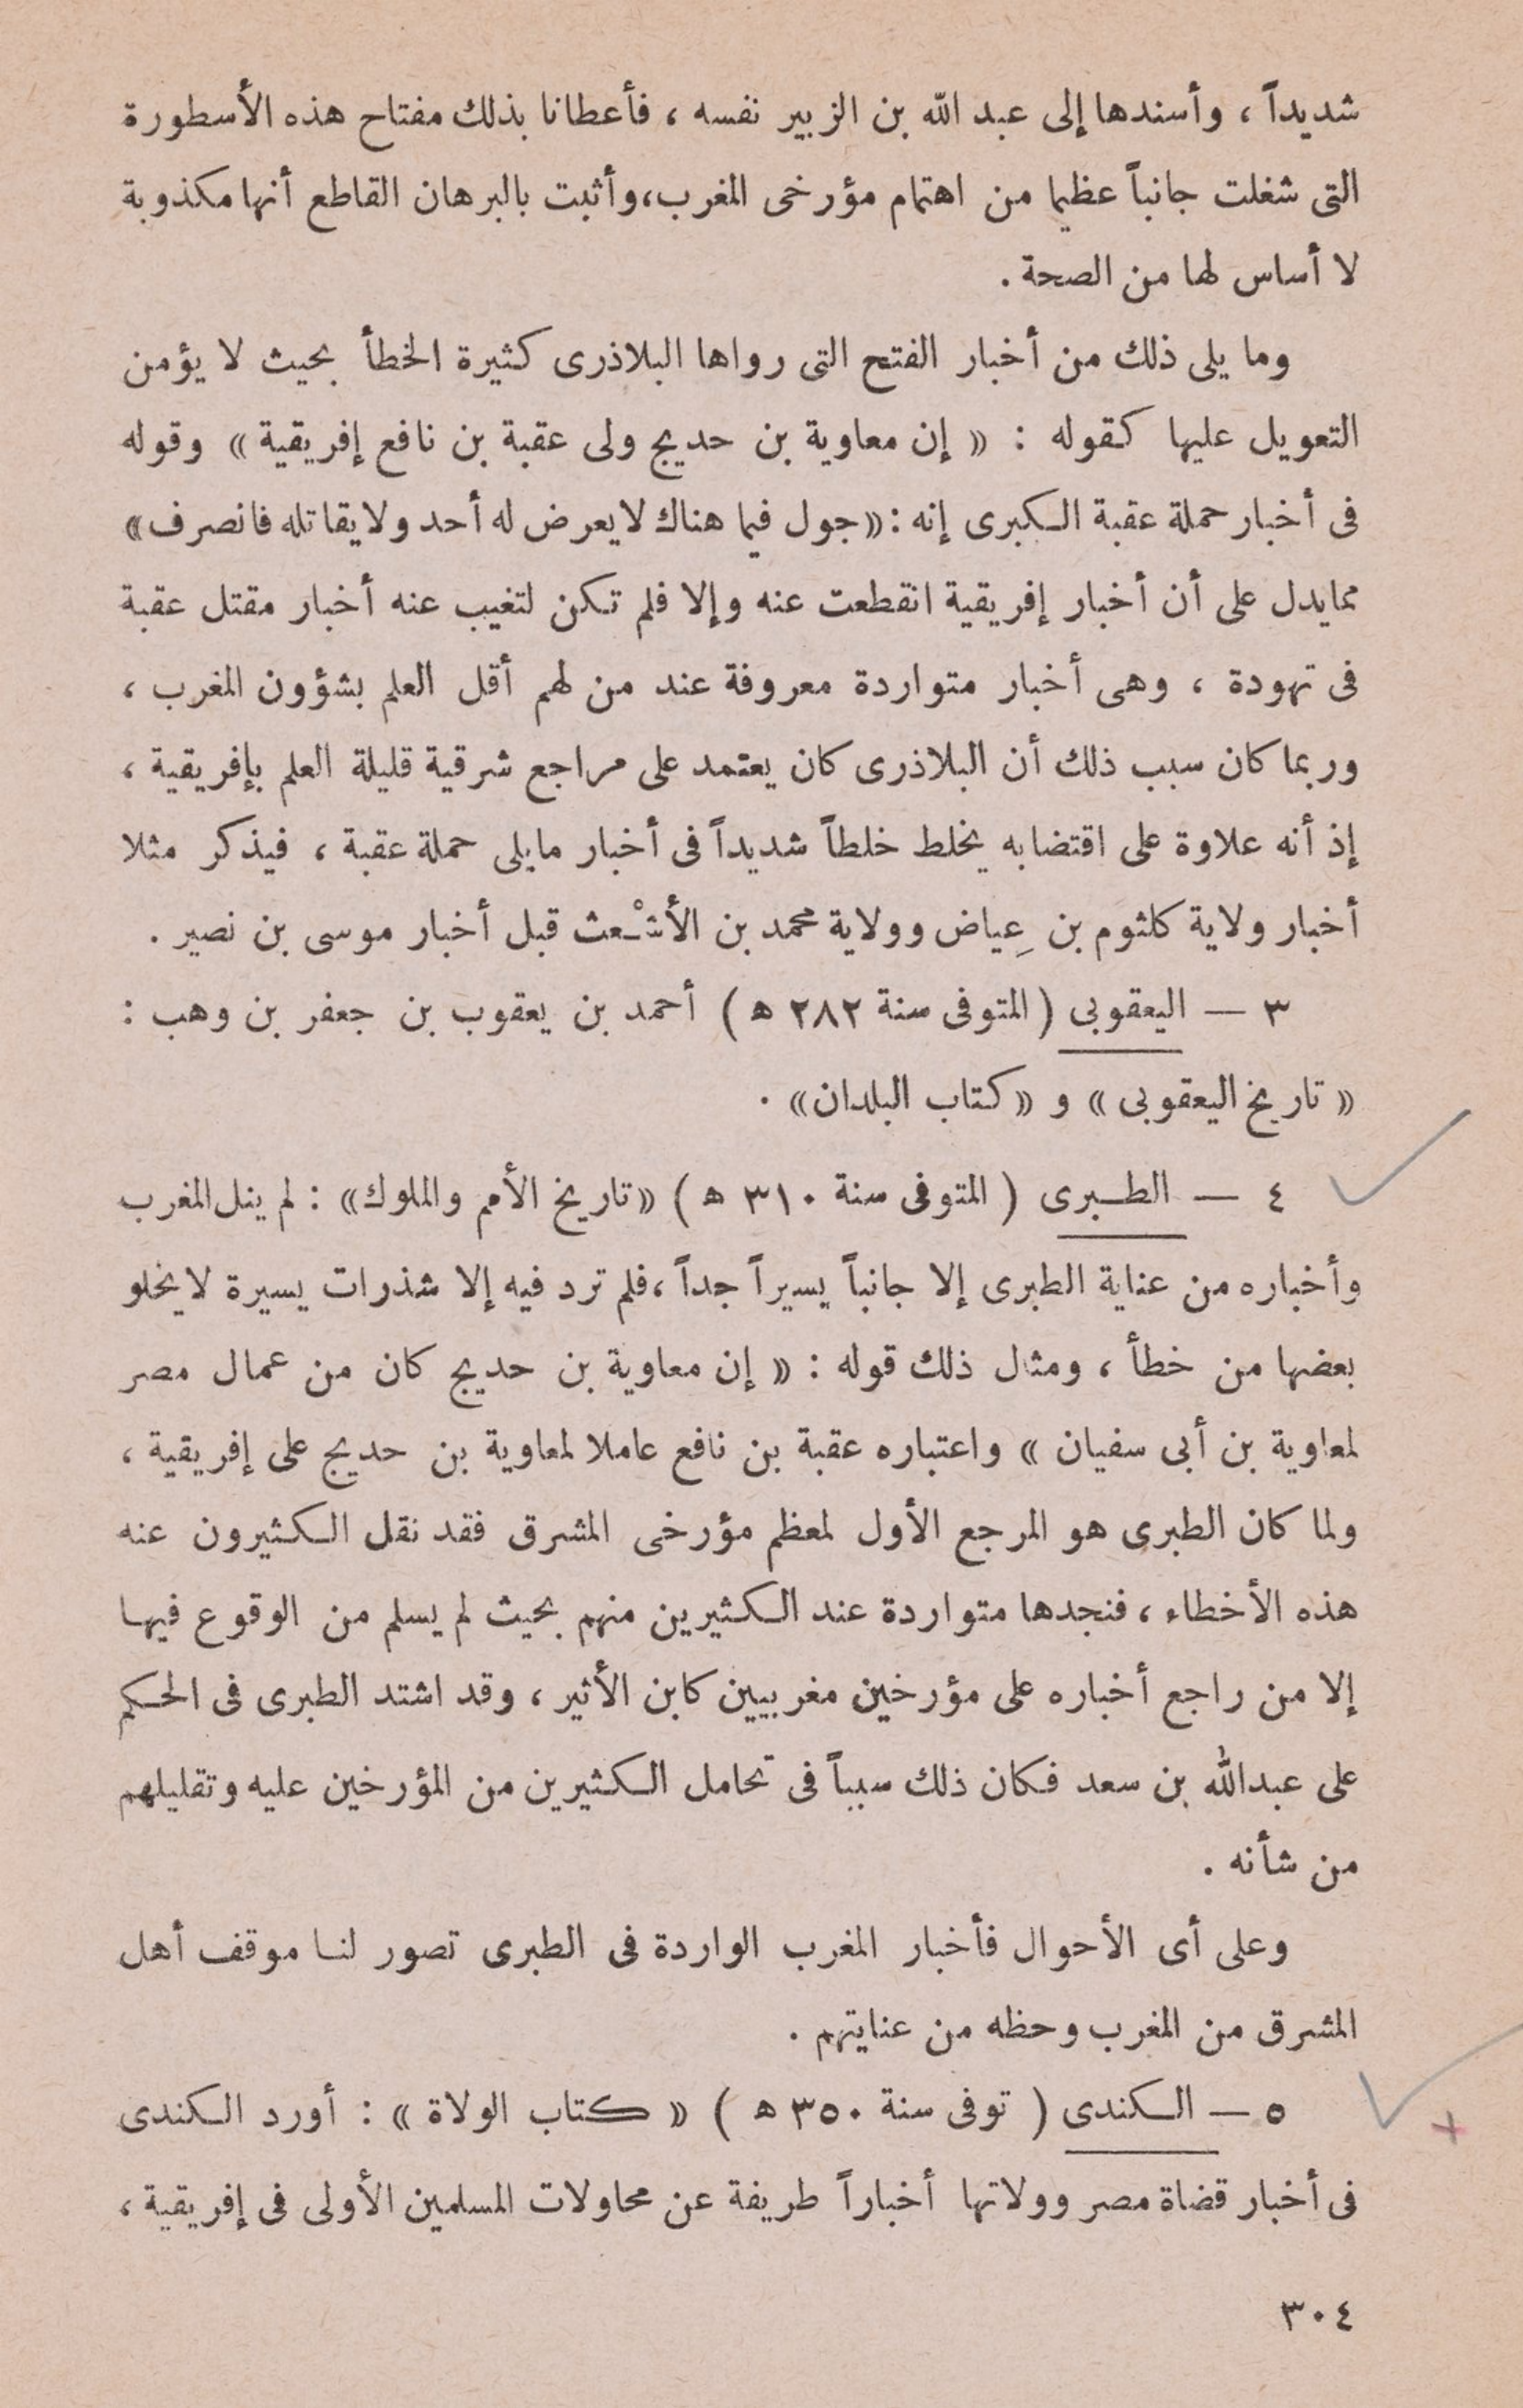 شديداً ، وأسندها إلى عبد الله بن الزبير نفسه ، فأعطانا بذلك مفتاح هذه الأسطورة
التى شغلت جانباً عظيما من اهتمام مؤرخى المغرب، وأثبت بالبرهان القاطع أنها مكذوبة
لا أساس لها من الصحة .
وما يلى ذلك من أخبار الفتح التى رواها البلاذرى كثيرة الخطأ بحيث لا يؤمن
التعويل عليها كقوله : « إن معاوية بن حديج ولى عقبة بن نافع إفريقية » وقوله
فى أخبار حملة عقبة الكبرى إنه : «جول فيما هناك لا يعرض له أحد ولا يقاتله فانصرف»
مما يدل على أن أخبار إفريقية انقطعت عنه وإلا فلم تكن لتغيب عنه أخبار مقتل عقبة
فى تهودة ، وهى أخبار متواردة معروفة عند من لهم أقل العلم بشؤون المغرب ،
وربما كان سبب ذلك أن البلاذرى كان يعتمد على مراجع شرقية قليلة العلم بإفريقية ،
إذ أنه علاوة على اقتضابه يخلط خلطاً شديداً فى أخبار ما يلى حملة عقبة ، فيذكر مثلا
أخبار ولاية كلثوم بن عِياض وولاية محمد بن الأشْعث قبل أخبار موسى بن نصير .
٣ — اليعقوبى ( المتوفى سنة ٢٨٢ ھ ) أحمد بن يعقوب بن جعفر بن وهب :
« تاريخ اليعقوبى » و « كتاب البلدان » .
٤ — الطبرى ( المتوفى سنة ٣١٠ ھ ) « تاريخ الأمم والملوك » : لم ينل المغرب
وأخباره من عناية الطبرى إلا جانباً يسيراً جداً ، فلم ترد فيه إلا شذرات يسيرة لا يخلو
بعضها من خطأ ، ومثال ذلك قوله : « إن معاوية بن حديج كان من عمال مصر
لمعاوية بن أبى سفيان » واعتباره عقبة بن نافع عاملا لمعاوية بن حديج على إفريقية ،
ولما كان الطبرى هو المرجع الأول لمعظم مؤرخى المشرق فقد نقل الكثيرون عنه
هذه الأخطاء ، فنجدها متواردة عند الكثيرين منهم بحيث لم يسلم من الوقوع فيها
إلا من راجع أخباره على مؤرخين مغربيين كابن الأثير ، وقد اشتد الطبرى فى الحكم
على عبد الله بن سعد فكان ذلك سبباً فى تحامل الكثيرين من المؤرخين عليه وتقليلهم
من شأنه .
وعلى أى الأحوال فأخبار المغرب الواردة فى الطبرى تصور لنا موقف أهل
المشرق من المغرب وحظه من عنايتهم .
٥ — الكندى ( توفى سنة ٣٥٠ ھ ) « كتاب الولاة » : أورد الكندى
فى أخبار قضاة مصر وولاتها أخباراً طريفة عن محاولات المسلمين الأولى فى إفريقية ،
٣٠٤